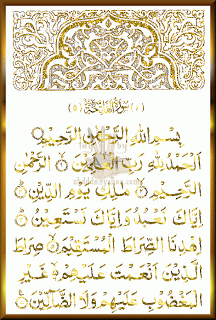 (١) سورة الفاتحة (٥)
بِسْمِ اللهِ الرَّحْمٰنِ الرَّحِيْمِ
اَلْحَمْدُ لِلّٰهِ رَبِّ الْعٰلَمِيْنَ الرَّحْمٰنِ
الرَّحِيْمِ مٰلِكِ يَوْمِ الدِّيْنِ
اِيَّاكَ نَعْبُدُ وَاِيَّاكَ نَسْتَعِيْنُ
اِهْدِنَا الصِّرَاطَ الْمُسْتَقِيْمَ صِرَاطَ
الَّذِيْنَ اَنْعَمْتَ عَلَيْهِمْ غَيْرِ
الْمَغْضُوْبِ عَلَيْهِمْ وَلَا الضَّآلِّيْنَ